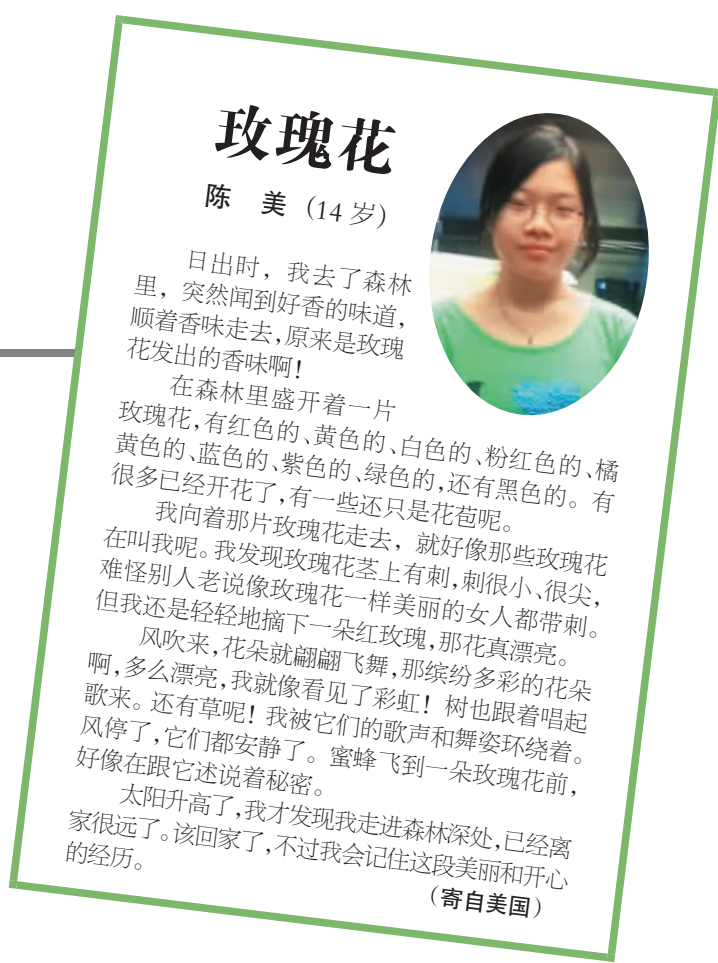 玫瑰花
陈 美（14 岁）
日出时，我去了森林
里，突然闻到好香的味道，
顺着香味走去，原来是玫瑰
花发出的香味啊！
在森林里盛开着一片
玫瑰花，有红色的、黄色的、白色的、粉红色的、橘
黄色的、蓝色的、紫色的、绿色的，还有黑色的。有
很多已经开花了，有一些还只是花苞呢。
我向着那片玫瑰花走去，就好像那些玫瑰花
在叫我呢。我发现玫瑰花茎上有刺，刺很小、很尖，
难怪别人老说像玫瑰花一样美丽的女人都带刺。
但我还是轻轻地摘下一朵红玫瑰，那花真漂亮。
风吹来，花朵就翩翩飞舞，那缤纷多彩的花朵
啊，多么漂亮，我就像看见了彩虹！树也跟着唱起
歌来。还有草呢！我被它们的歌声和舞姿环绕着。
风停了，它们都安静了。蜜蜂飞到一朵玫瑰花前，
好像在跟它述说着秘密。
太阳升高了，我才发现我走进森林深处，已经离
家很远了。该回家了，不过我会记住这段美丽和开心
的经历。
（寄自美国）